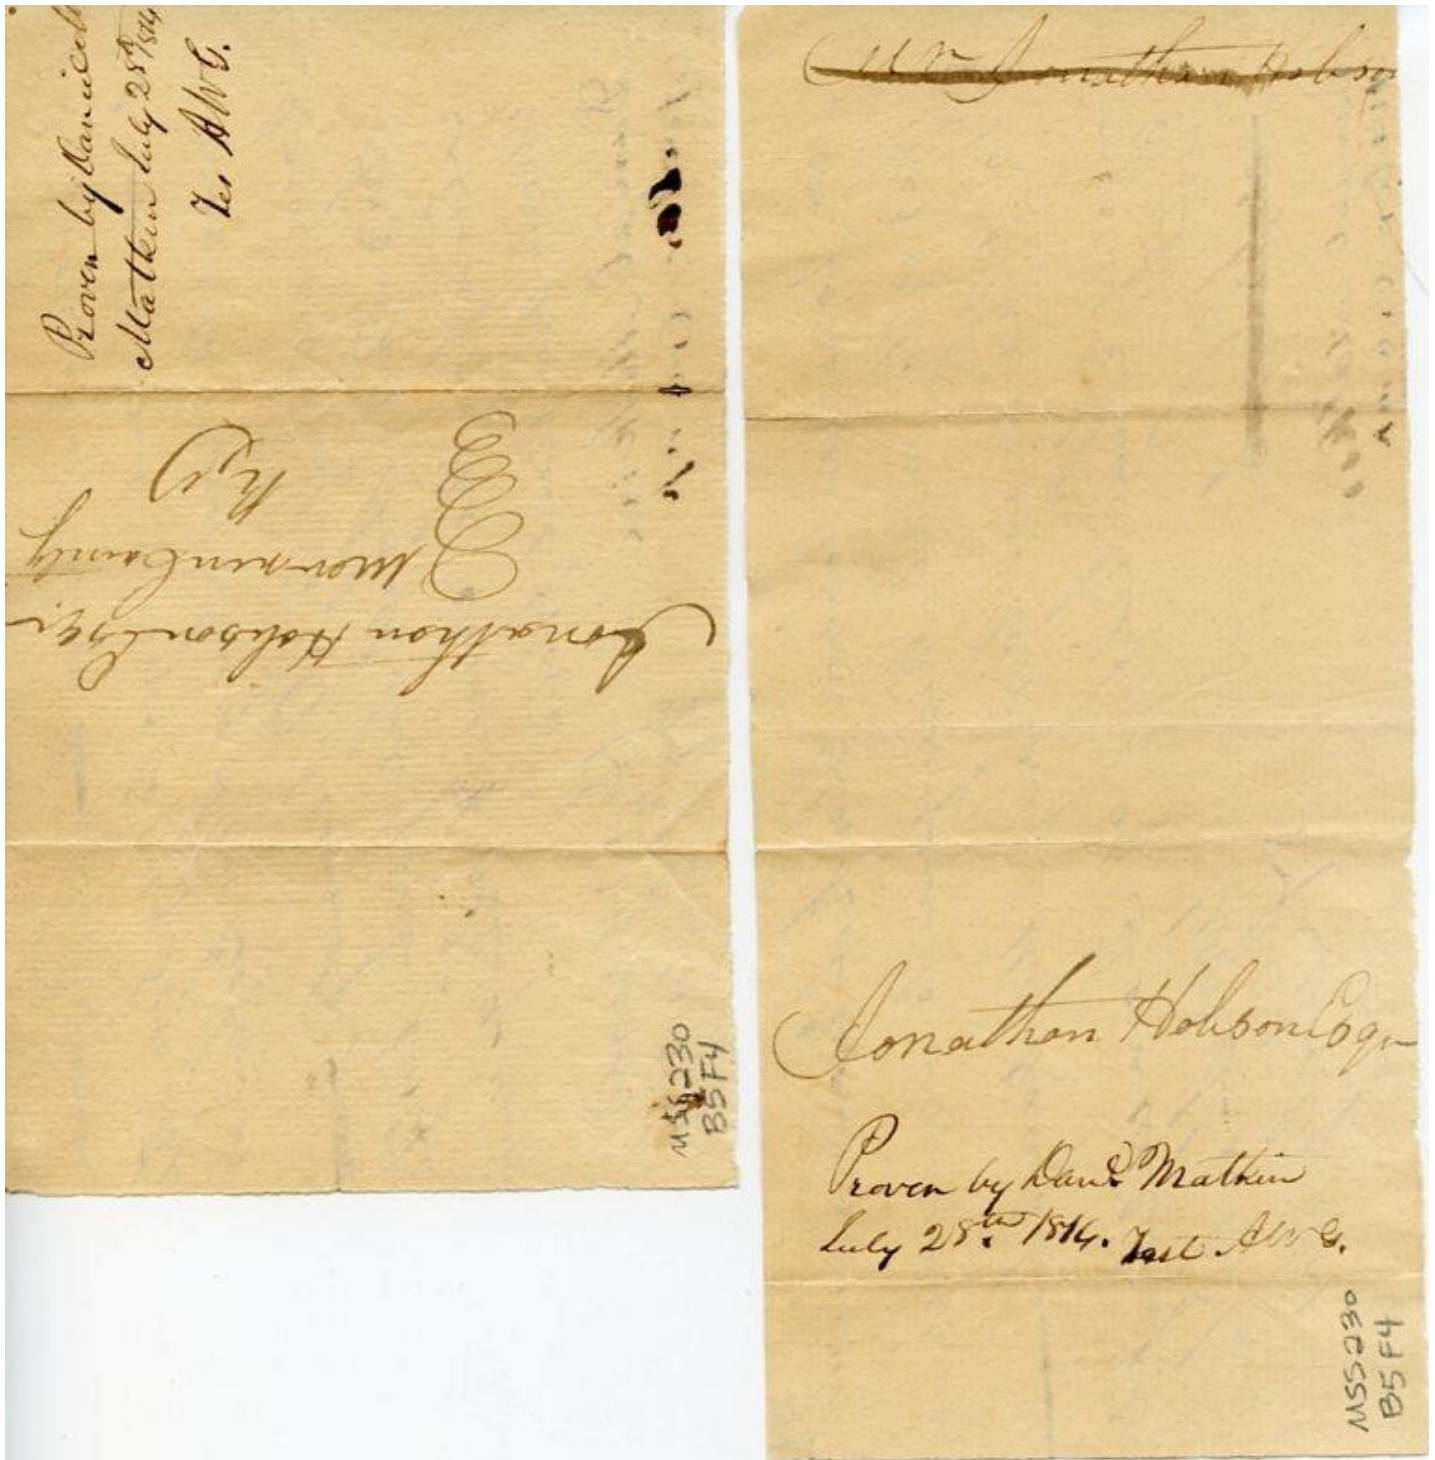 Proven by Daniel
Matkin July 28th 1814
Tes AWG.
Jonathan Hobson Esqr.
Warren County
Ky
MSS 230
B5 F4
Mr Jonathan Hobson
Jonathan Hobson Esqr
Proven by Danl. Matkin
July 28th. 1814. Test AWG.
MSS 230
B5 F4